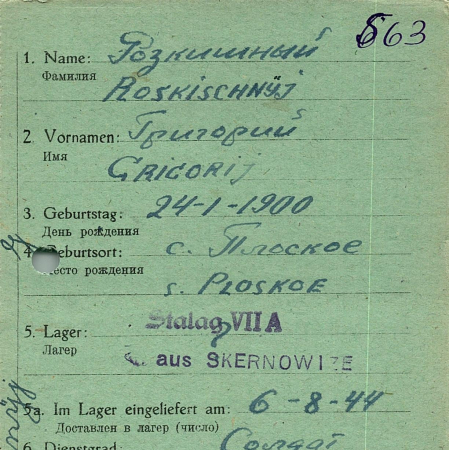 563
1. Name: Розкишный
Фамилия
ROSKISCHNYJ
2. Vornamen: Григорий
Имя
GRIGORIJ
3. Geburtstag: 24-1-1900
День рождения
4. Geburtsort: с. Плоское
Место рождения
s. PLOSKOE
5. Lager: Stalag VII A
Лагер
aus SKERNOWIZE
5a. Im Lager eingeliefert am: 6-8-44
Доставлен в лагер (число)
6. Dienstgrad: Солдат